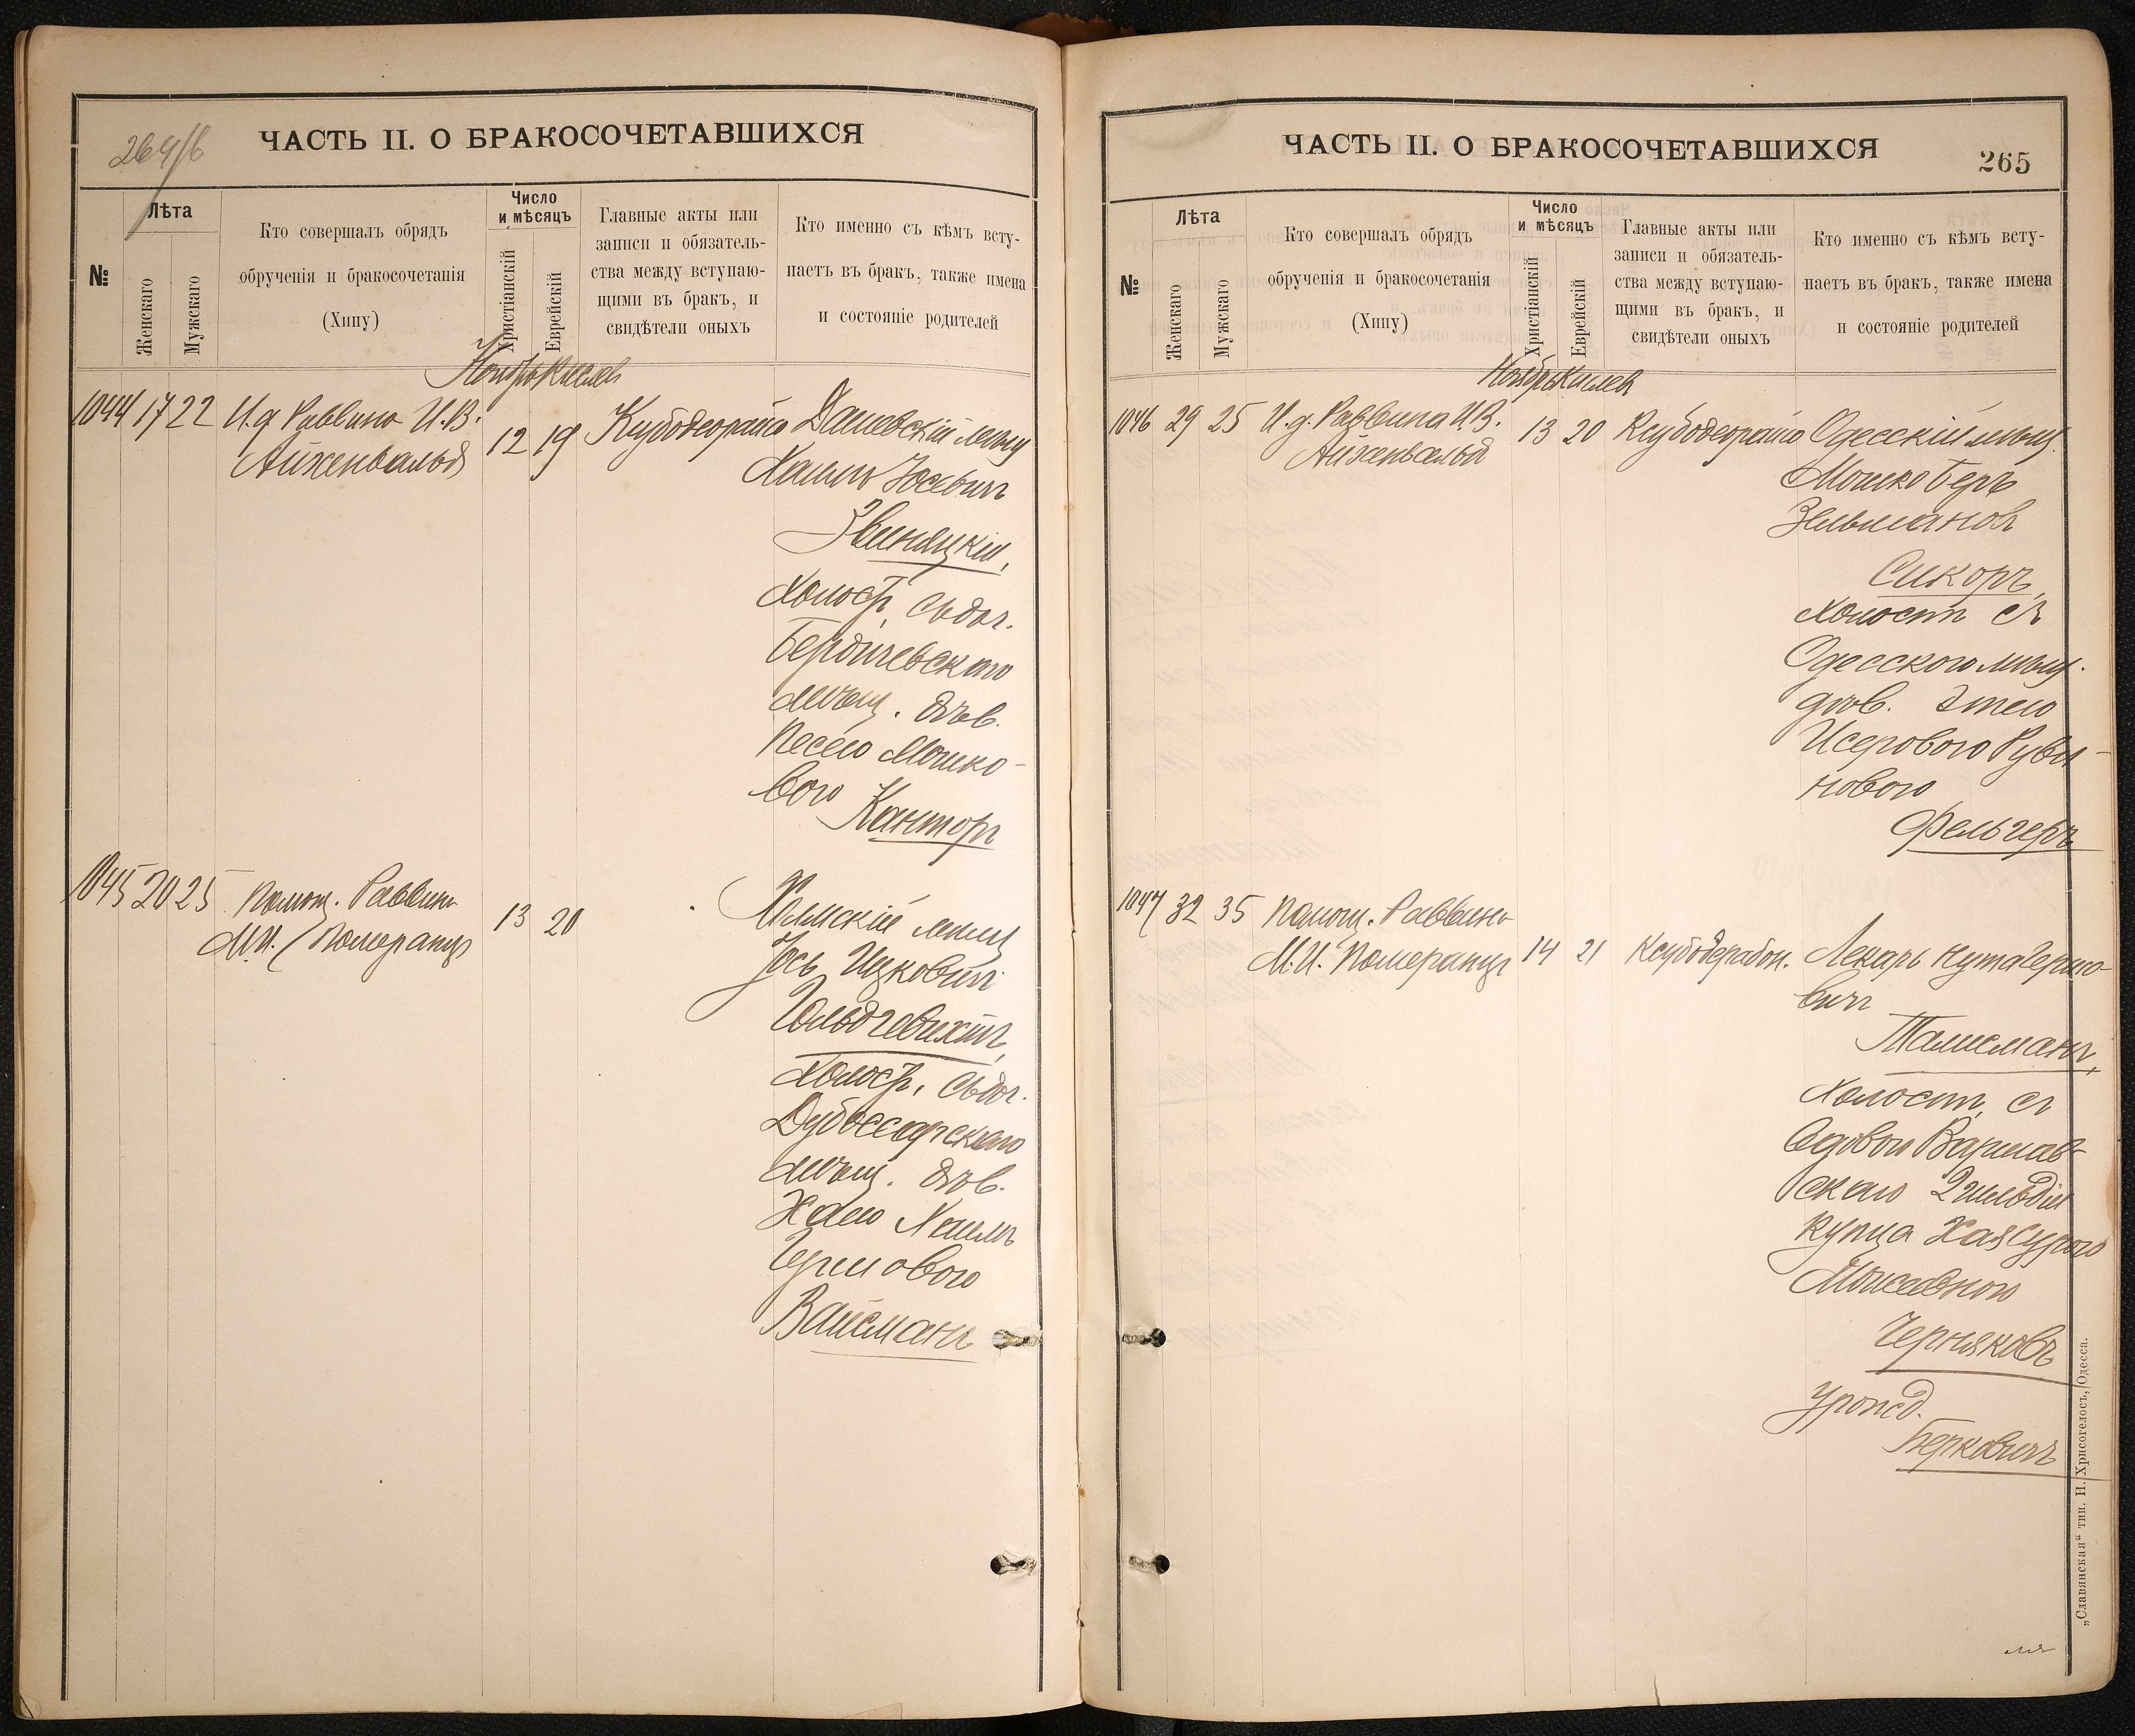 264/б
ЧАСТЬ II. О БРАКОСОЧЕТАВШИХСЯ
№
Лѣта
Женскаго
Мужскаго
Кто совершалъ обрядъ
обрученія и бракосочетанія
(Хипу)
Число
и мѣсяцъ
Христіанскій
Еврейскій
Главные акты или
записи и обязатель-
ства между вступаю-
щими въ бракъ, и
свидѣтели оныхъ
Кто именно съ кѣмъ всту-
паетъ въ бракъ, также имена
и состояніе родителей
Ноябрь Кислев
1044 17 22 И.д. Раввина И.В. 12 19 Ксубодеорайсо Дашевскій мѣщ
Айхенвальд
Хаимъ Іосевичъ
Звиняцкій,
холост, съ доч.
Бердичевскаго
мѣщ. дѣв.
Песею Мошко-
вою
Канторъ
1045 20 25 Помощ. Раввина 13 20
М.И. Померанцъ
мѣщ
Іось Ицковичъ
Гольдгевихтъ,
холост, съ доч.
Дубоссарскаго
мѣщ. дѣв.
Хаею Хаимъ
Гершовою
Вайсманъ
ЧАСТЬ II. О БРАКОСОЧЕТАВШИХСЯ
265
№
Лѣта
Женскаго
Мужскаго
Кто совершалъ обрядъ
обрученія и бракосочетанія
(Хипу)
Число
и мѣсяцъ
Христіанскій
Еврейскій
Главные акты или
записи и обязатель-
ства между вступаю-
щими въ бракъ, и
свидѣтели оныхъ
Кто именно съ кѣмъ всту-
паетъ въ бракъ, также имена
и состояніе родителей
Ноябрь Кислев
1046 29 25 И.д. Раввина И.В. 13 20 Ксубодеорайсо Одесскій мѣщ.
Айхенвальд
Мошко Беръ
Зельмановъ
Сикоръ,
холост съ
Одесскою мѣщ.
дѣв. Этею
Исеровою Руви-
новою
Фельгеръ
1047 32 35 Помощ. Раввина
М.И. Померанцъ 14 21 Ксубодерабон. Лекарь Нута Гершо-
вичъ
Талисманъ,
холост, съ
вдовой Варшав-
скаго 2 гильдіи
купца Хая Сурою
Моисеевною
Черняковъ
урожд.
Берковичъ
„Славянская“ тип. Н. Хрисогелосъ, Одесса.